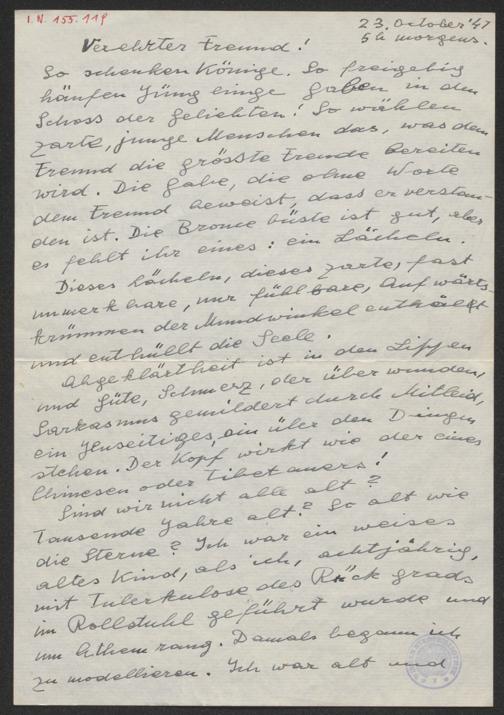 I.N. 155.119
23. October '47
5h morgens.
Verehrter Freund!
So schenken Könige. So freigebig
häufen Jünglinge Gaben in den
Schoss der Geliebten! So wählen
zarte, junge Menschen das, was dem
Freund die grösste Freude bereiten
wird. Die Gabe, die ohne Worte
dem Freund beweist, dass er verstan-
den ist. Die Bronce büste ist gut, aber
es fehlt ihr eines: ein Lächeln.
Dieses Lächeln, dieses zarte, fast
unmerkbare, nur fühlbare, Aufwärts-
krümmen der Mundwinkel enthält
und enthüllt die Seele.
Abgeklärtheit ist in den Lippen
und Güte, Schmerz, der überwunden,
Sarkasmus gemildert durch Mitleid,
ein Jenseitiges, ein über den Dingen
stehen. Der Kopf wirkt wie der eines
Chinesen oder Tibetaners!
Sind wir nicht alle alt?
Tausende Jahre alt? So alt wie
die Sterne? Ich war ein weises
altes Kind, als ich, achtjährig,
mit Tuberkulose des Rückgrads
im Rollstuhl geführt wurde und
um Athem rang. Damals begann ich
zu modellieren. Ich war alt und